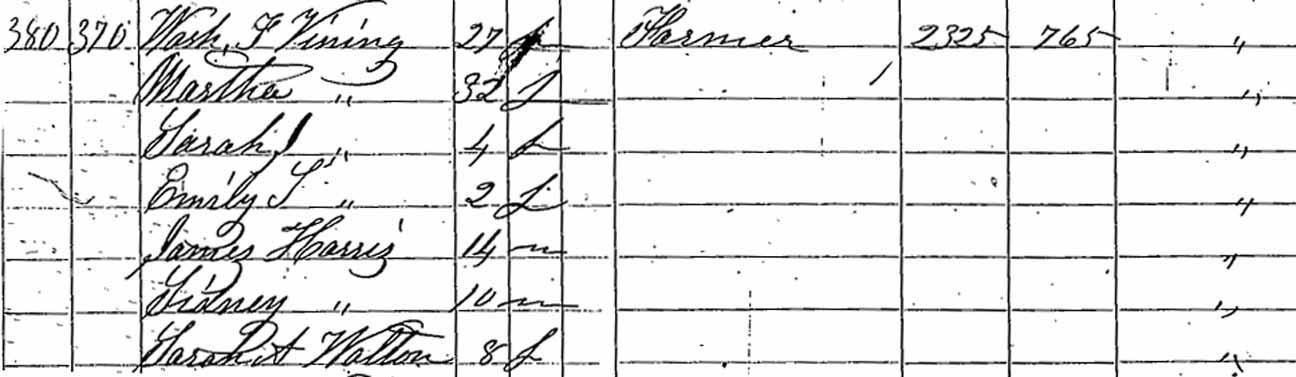 380 370 Wash. F Vining 27 Farmer 2325 765 "
Martha " 32 f "
Sarah J " 4 f "
Emily S " 2 f "
James Harris 14 m "
Sidney " 10 m "
Sarah A Walton 8 f "